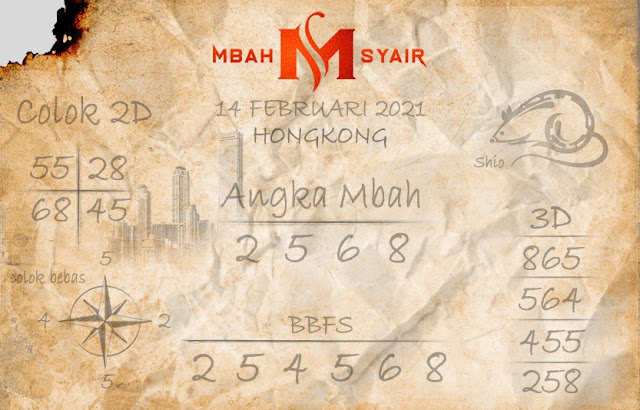 MBAH M SYAIR
Colok 2D
55 28
68 45
14 FEBRUARI 2021
HONGKONG
Shio
Angka Mbah
2 5 6 8
colok bebas
5
4 2
5
BBFS
2 5 4 5 6 8
3D
865
564
455
258